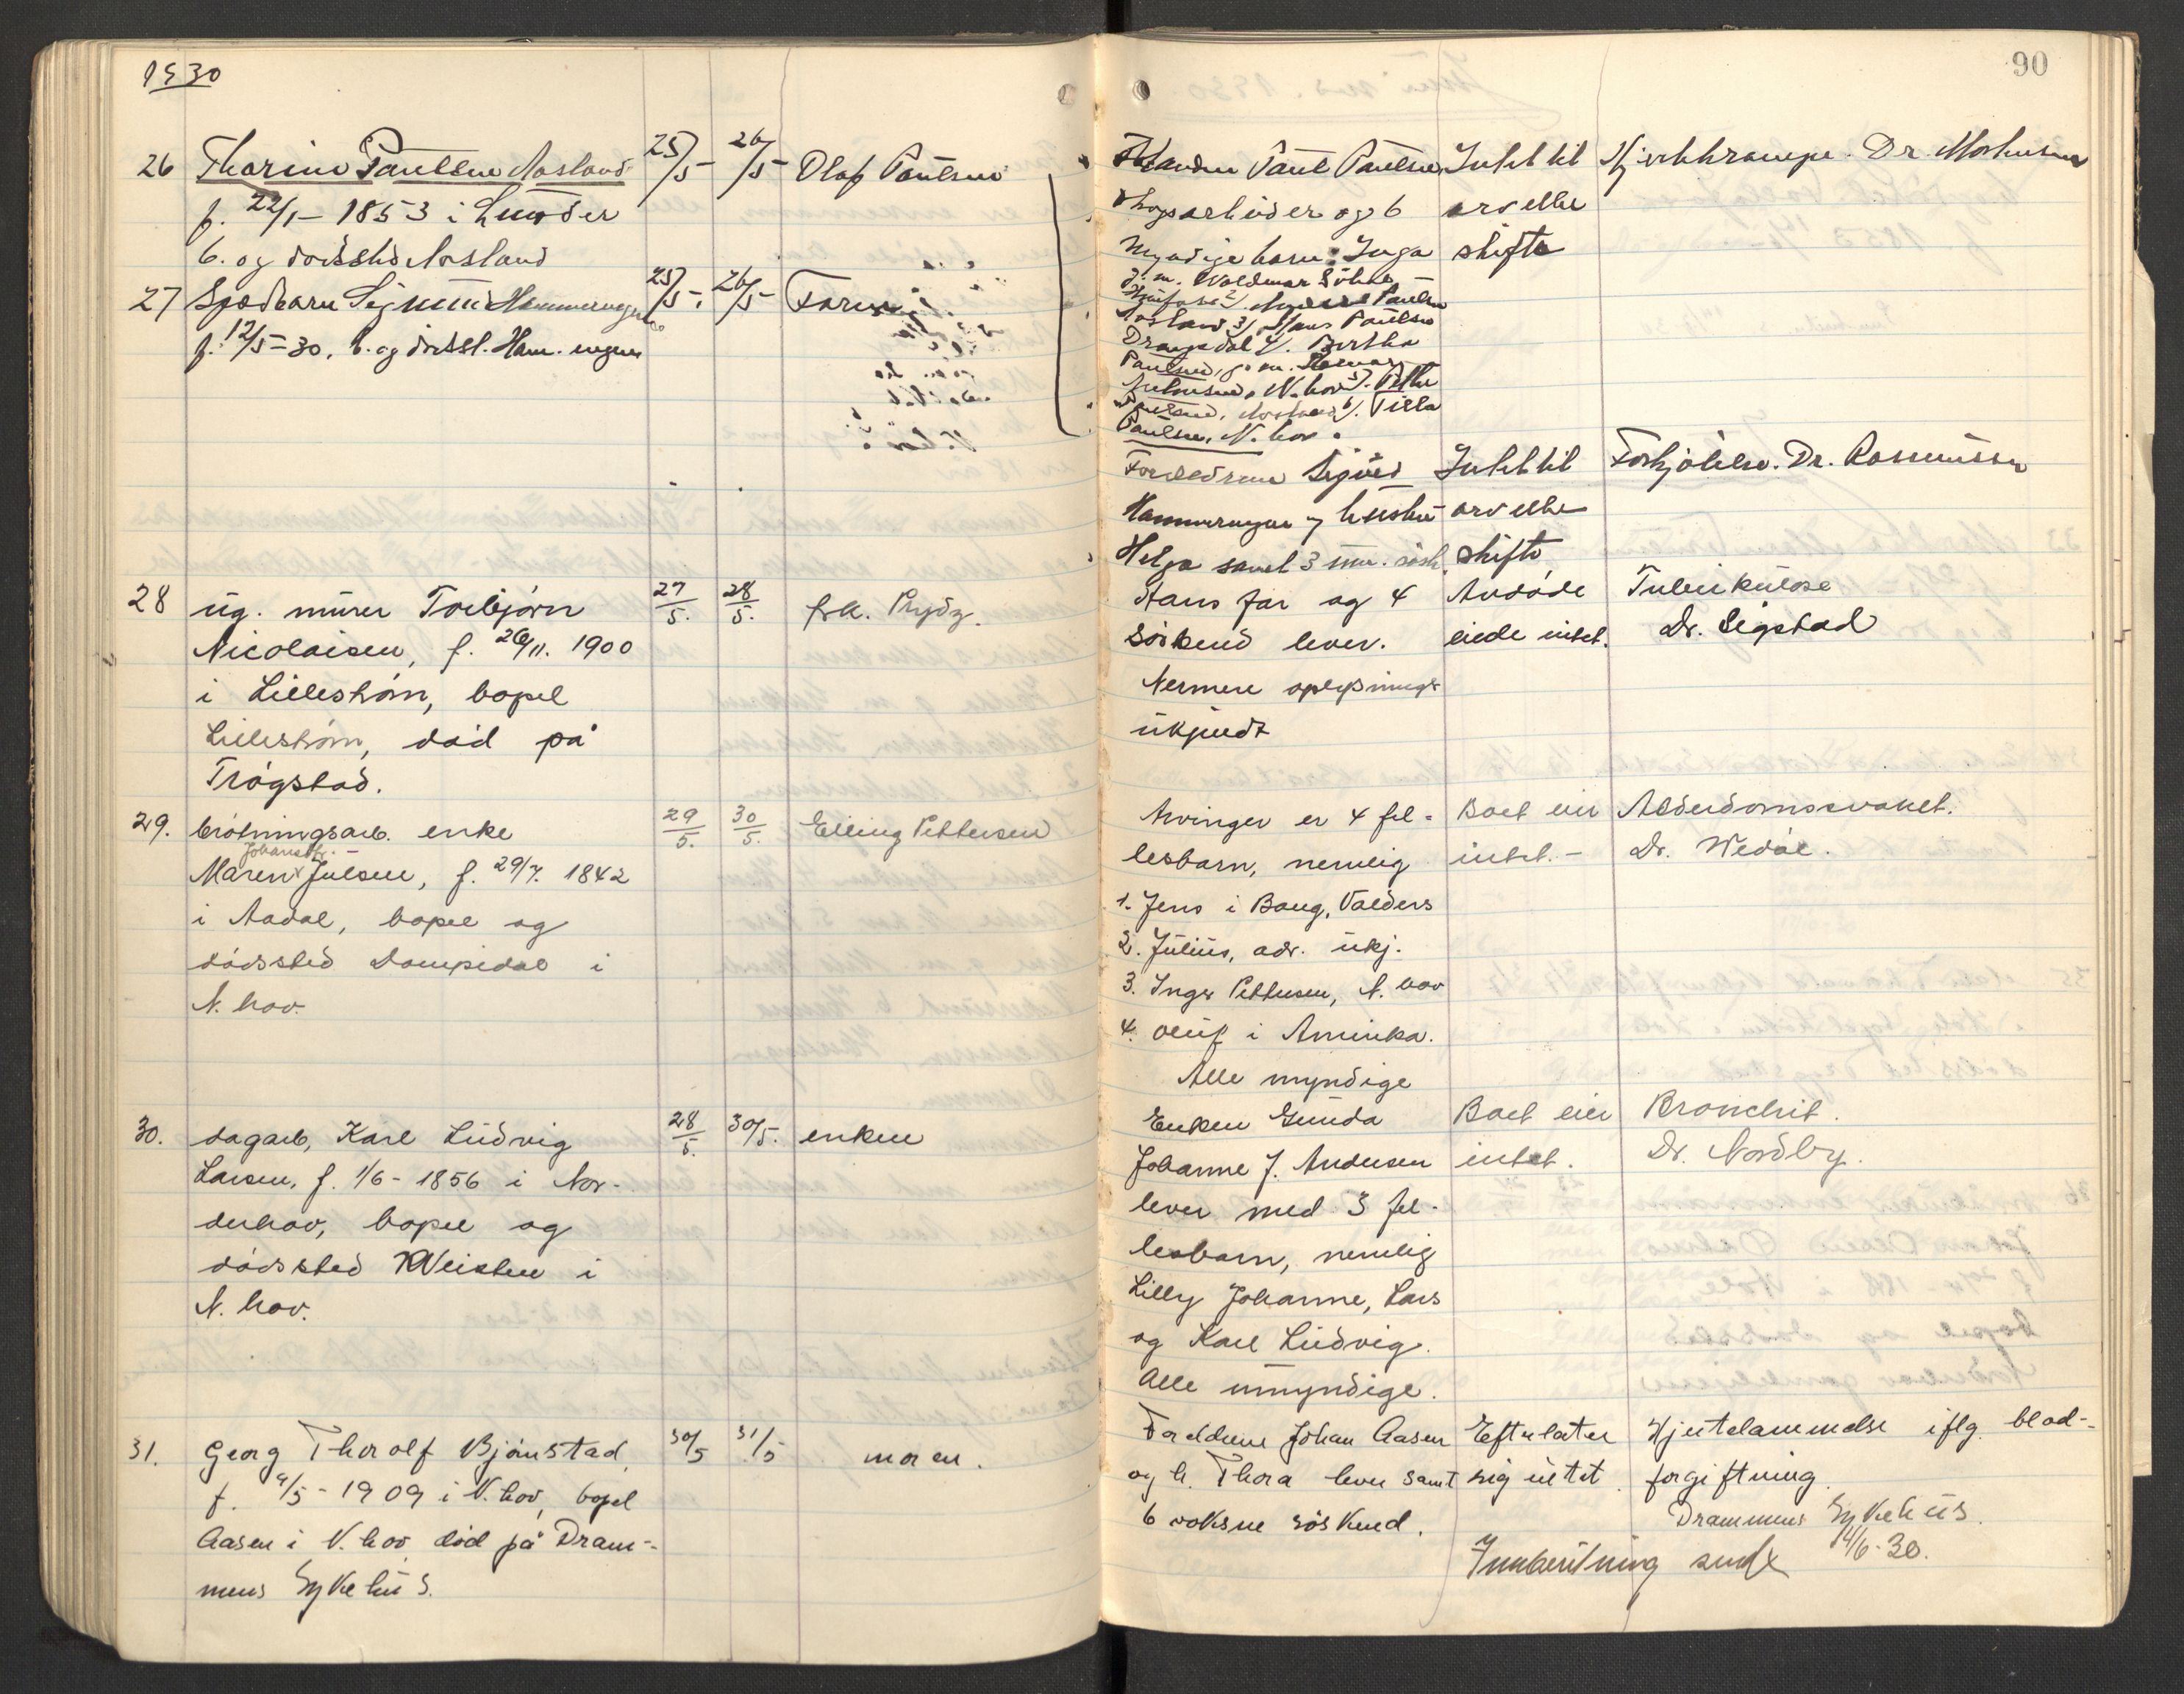 1930
90
26 Tharine Paulsen Aasland 25/5 26/5 Olaf Paulsen
f. 22/1 - 1853 i Lunder
b. og dødssted Aasland
27 Spedbarn Sigmund Hammerengen 25/5. 26/5 Faren
f. 12/5-30, b. og dødsst. Ham. engen
28 ug. murer Torbjørn 27/5. 28/5. frk. Prydz.
Nicolaisen, f. 26/11. 1900
i Lilleström, bopel
Lilleström, død på
Trøgstad.
29. brøtningsarb. enke 29/5. 30/5. Elling Pettersen
Johansdtr.
Maren Julsen, f. 29/7. 1842
i Aadal, bopel og
dødssted Dampedal i
N. hov.
30. dagarb, Karl Ludvig 28/5. 30/5. enken
Larsen, f. 1/6 - 1856 i Nor-
derhov, bopel og
dødssted Veisten i
N. hov.
31. Georg Thorolf Bjørnstad 30/5 31/5 moren.
f. 9/5 - 1909 i N. hov, bopel
Aasen i N. hov død på Dram-
mens Sykehus.
Manden Paul Paulsen Intet til Hjertekrampe. Dr.
skogsarbeider og 6 arv eller
myndige barn: Inga skifte
g. m. Waldemar
2/. Paulsen
Aasland 3/. Hans Paulsen
4/. Bertha
Paulsen, g. m.
N. hov 5/.
Paulsen, Aasland 6/. Tilla
Paulsen, N. hov.
Foreldrene Sigurd Intet til Forkjølelse. Dr. Rasmussen
Hammerengen og hustru arv eller
Helga samt 3 um. søsk. skifte
Hans far og 4 Avdøde Tuberkulose
søskend lever. eiede intet. Dr. Sigstad
Nermere oplysninger
ukjendt
Arvinger er 4 fel- Boet eier Alderdomssvakhet.
lesbarn, nemlig intet. - Dr. Wedøe.
1. Jens i Bang, Valders
2. Julius, adr. ukj.
3. Inger Pettersen, N. hov
4. Oluf i Amerika.
Alle myndige
Enken Gunda Boet eier Bronchit.
Johanne J. Andersen intet. Dr. Nordby.
lever med 3 fel-
lesbarn, nemlig
Lilly Johanne, Lars
og Karl Ludvig.
Alle umyndige.
Forældrene Johan Aasen Efterlater Hjertelammelse iflg. blod-
og h. Thora lever samt sig intet. forgiftning.
6 voksne søskend. Drammens Sykehus.
Innberetning sendt 14/6-30.